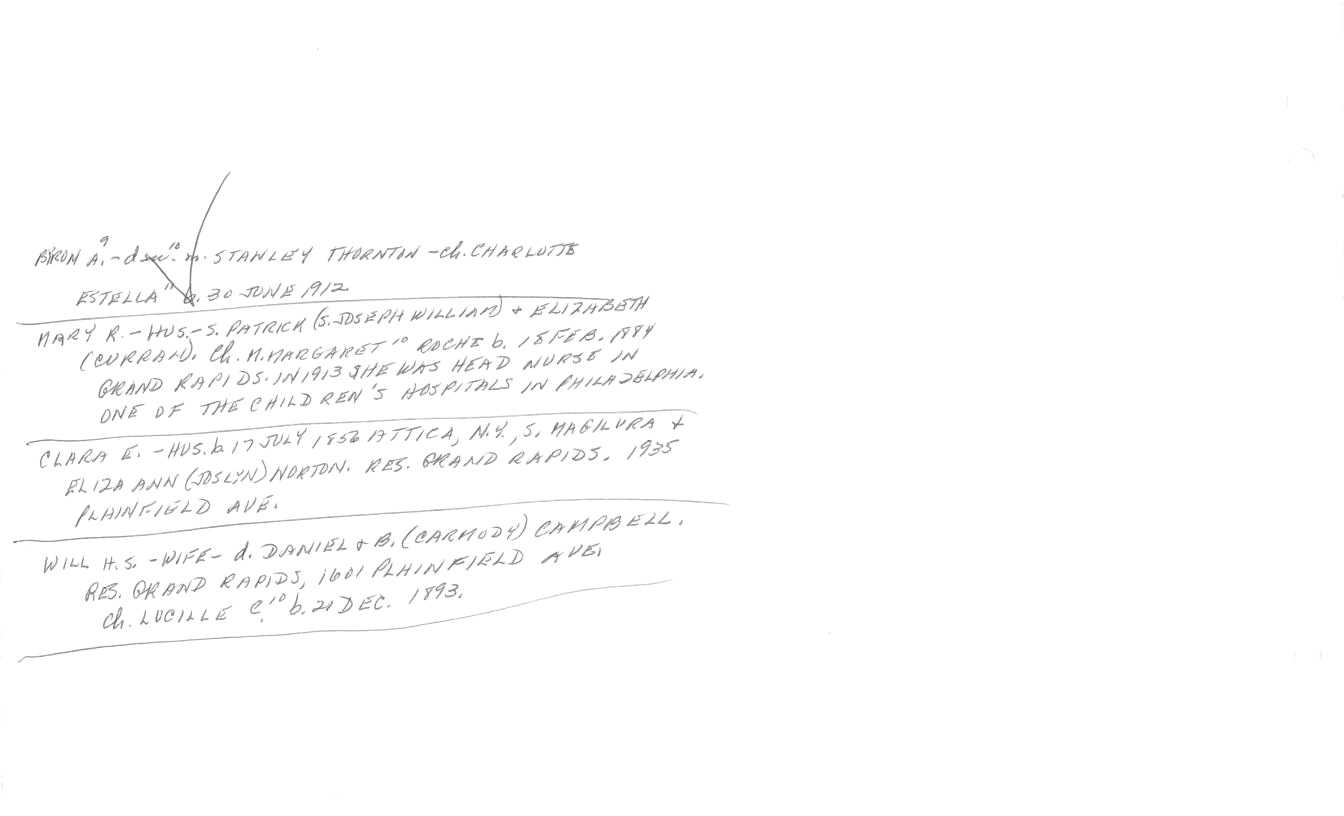 BYRON A.⁹ - d sw.¹⁰ m. STANLEY THORNTON - Ch. CHARLOTTE
ESTELLA¹¹ b. 30 JUNE 1912
MARY R. - HUS. - S. PATRICK (S. JOSEPH WILLIAM) & ELIZABETH
(CURRAN). Ch. M. MARGARET¹⁰ ROCHE b. 18 FEB. 1884
GRAND RAPIDS. IN 1913 SHE WAS HEAD NURSE IN
ONE OF THE CHILDREN'S HOSPITALS IN PHILADELPHIA.
CLARA E. - HUS. b. 17 JULY 1856 ATTICA, N.Y., S. MAGILVRA &
ELIZA ANN (JOSLYN) NORTON. RES. GRAND RAPIDS. 1935
PLAINFIELD AVE.
WILL H.S. - WIFE - d. DANIEL & B. (CARMODY) CAMPBELL.
RES. GRAND RAPIDS, 1601 PLAINFIELD AVE.
Ch. LUCILLE C.¹⁰ b. 21 DEC. 1893.